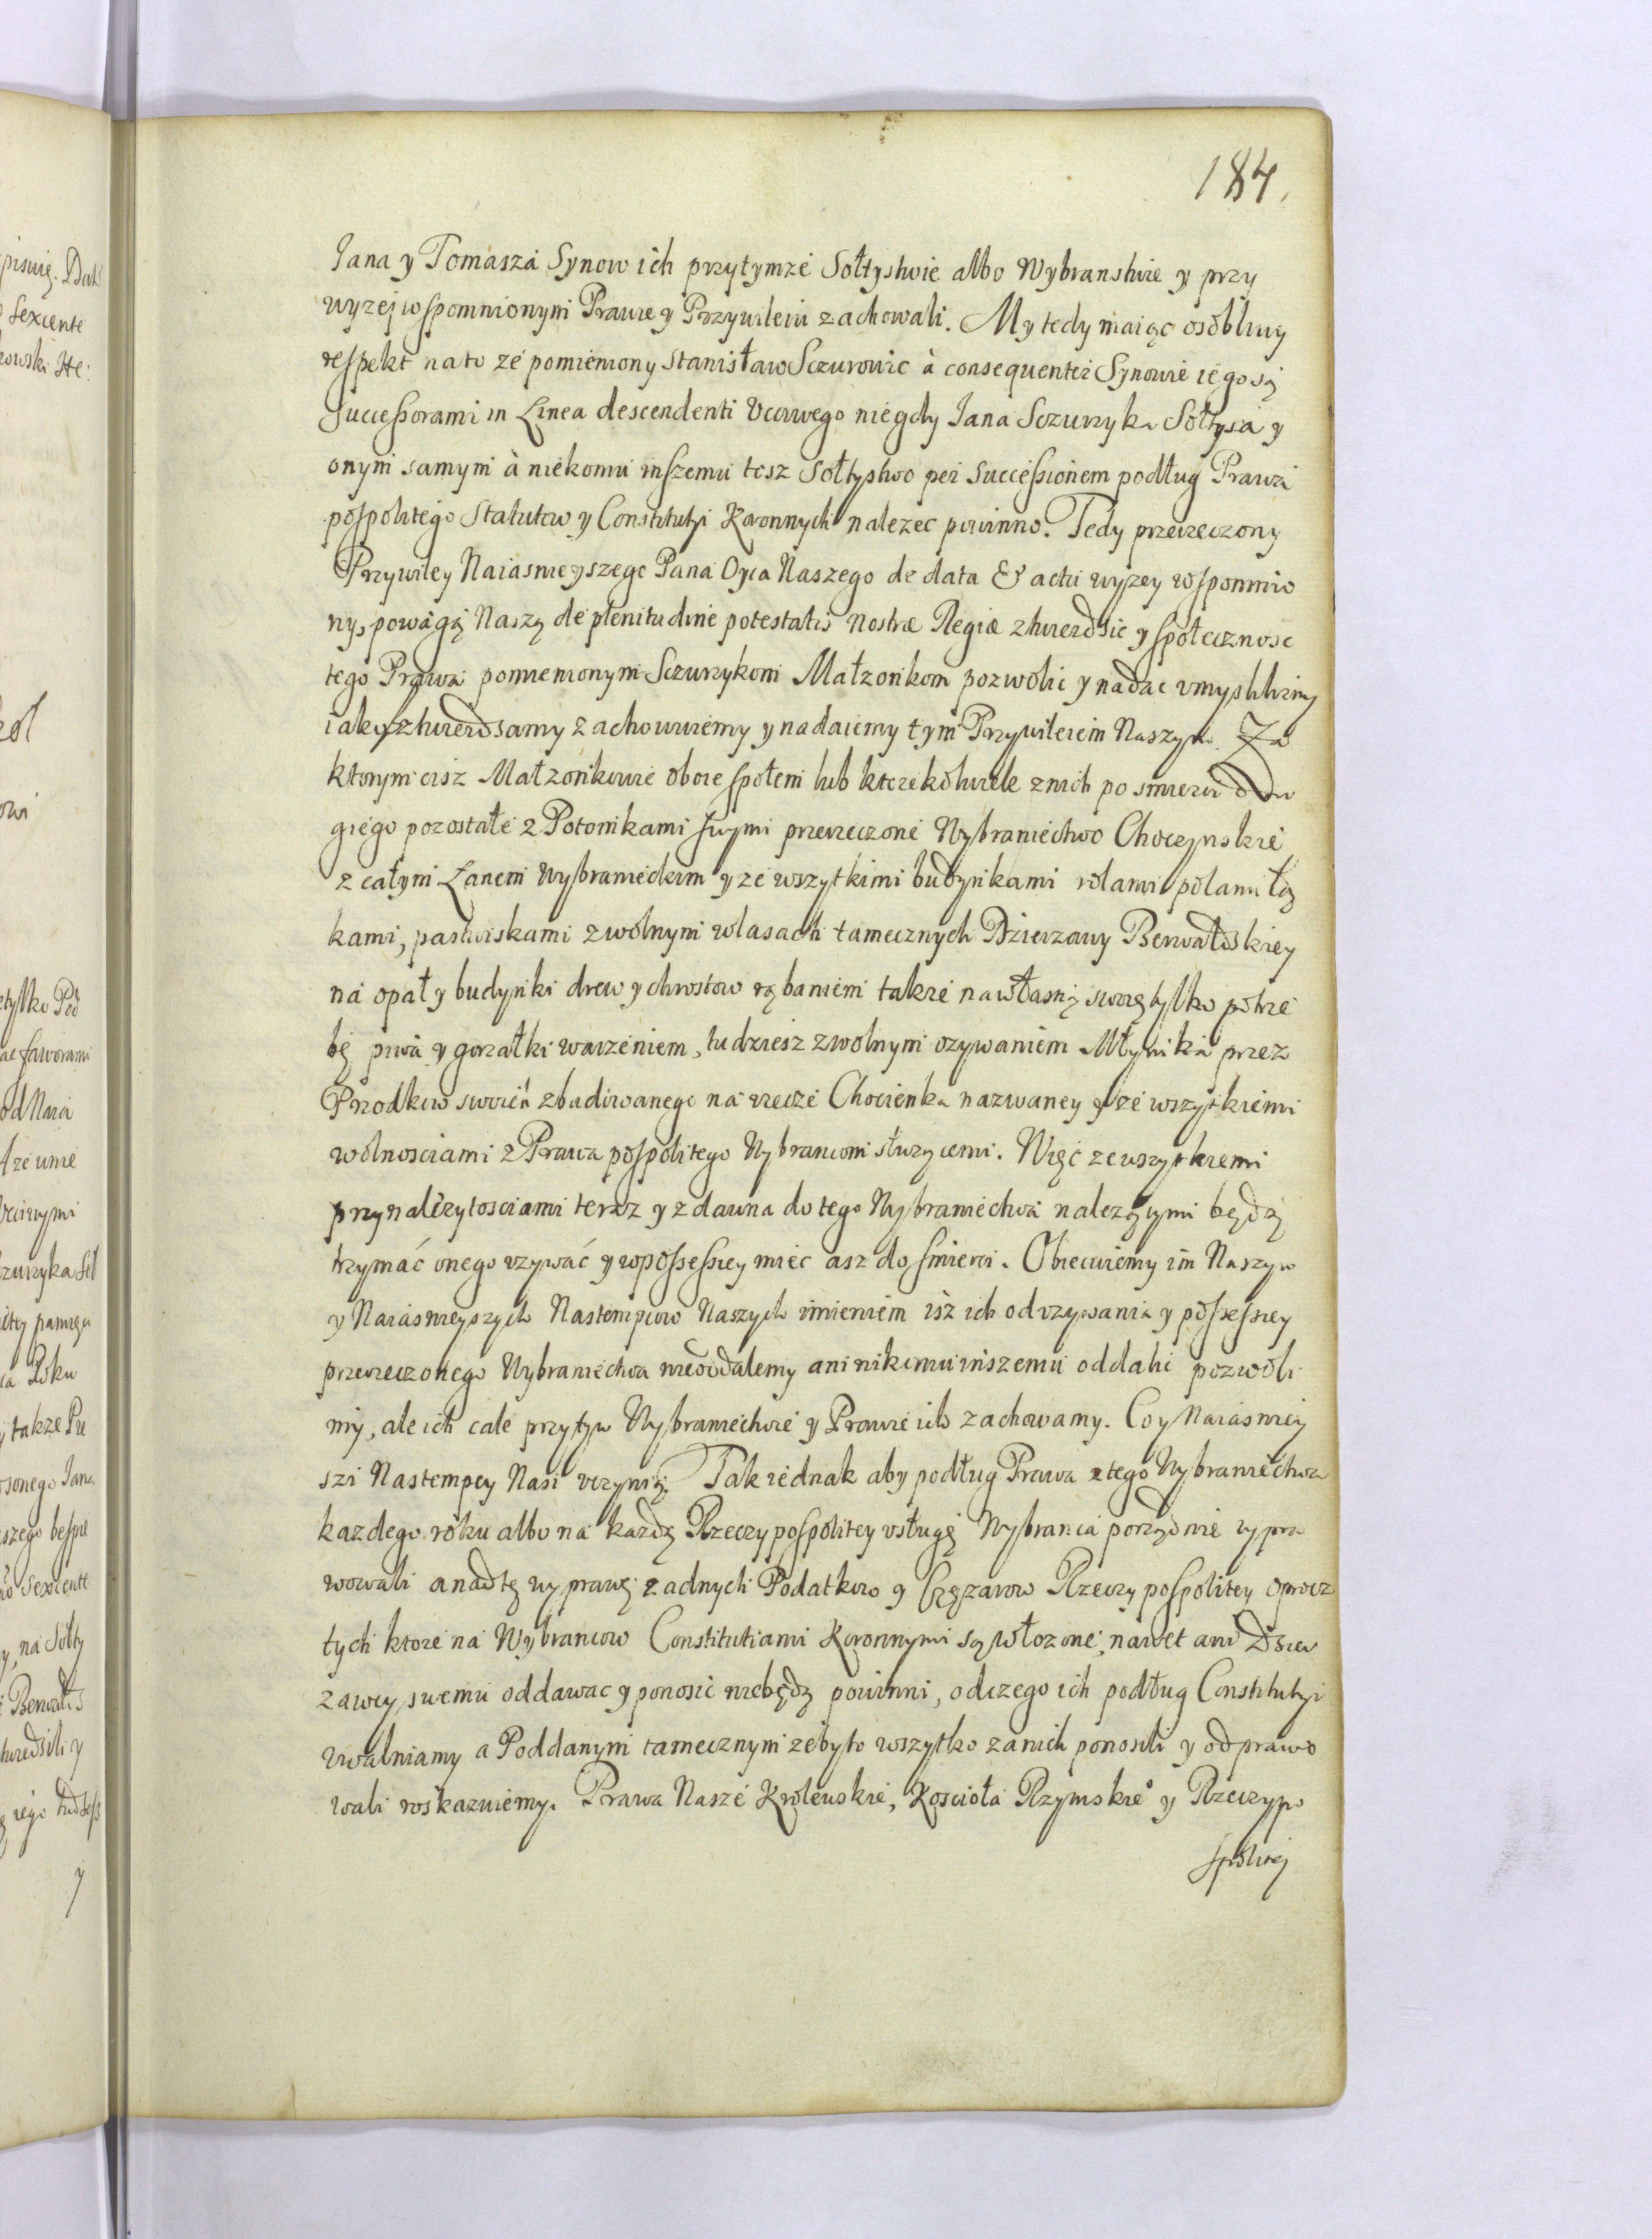 184.
Jana y Tomasza Synow ich przytymze Sołtystwie albo Wybranstwie y przy
wyzej wspomnionym Prawie y Przywileiu zachowali. My tedy maiąc osobliwy
respekt na to ze pomieniony Stanisław Sczurowic à consequenter Synowie iego są
Successorami in Linea descendenti Vcciwego niegdy Jana Sczurzyka Sołtysa y
onym samym à niekomu inszemu tosz Sołtystwo per Successionem podług Prawa
pospolitego Statutow y Constitutyi Koronnych nalezec powinno. Tedy przerzeczony
Przywiley Naiasnieyszego Pana Oyca Naszego de data & actu wyzey wspomnio
ny, powagą Naszą de plenitudine potestatis Nostræ Regiæ ztwierdsic y społecznosc
tego Prawa pomienionym Sczurzykom Małzonkom pozwolic y nadac vmyslilismy
iakosz ztwierdsamy zachowuiemy y nadaiemy tym Przywileiem Naszym. Za
ktorym cisz Małzonkowie oboie społem lub ktorekolwiek znich po smierci dru
giego pozostałe z Potomkami swymi przerzeczone Wybraniectwo Choczynskie
z całym Łanem Wybranieckim y ze wszytkimi budynkami rolami polami łą
kami, pastwiskami zwolnym wlasach tamecznych Dzierzawy Berwałdskiey
na opał y budynki drew y chrostow rąbaniem takze na własną swoię tylko potrze
bę piwa y gorzałki warzeniem, tudziesz zwolnym vzywaniem Młynika przez
Przodkow swoich zbudowanego na rzecze Chocienka nazwaney y ze wszytkiemi
wolnosciami z Prawa pospolitego Wybrancom słuzącemi. Więc ze wszytkiemi
przynalezytosciami teraz y zdawna do tego Wybraniectwa nalezącymi będą
trzymać onego vzywać y wpossessiey miec asz do smierci. Obiecuiemy im Naszym
y Naiasnieyszych Nastempcow Naszych imieniem isz ich od vzywania y possessiey
przerzeczonego Wybraniectwa nieoddalemy ani nikomu inszemu oddalic pozwoli
my, ale ich cale przytym Wybraniectwie y Prawie ich zachowamy. Co y Naiasniey
szi Nastempcy Nasi vczynią. Tak iednak aby podług Prawa z tego Wybraniectwa
kazdego roku albo na kazdą Rzeczypospolitey vsługę Wybranca porządnie wypra
wowali a nadtę wyprawę zadnych Podatkow y Cięzarow Rzeczypospolitey oprocz
tych ktore na Wybrancow Constitutiami Koronnymi są włozone, nawet ani Dsier
zawcy swemu oddawac y ponosic niebędą powinni, odczego ich podług Constitutyi
vwalniamy a Poddanym tamecznym zeby to wszytko zanich ponosili y odprawo
wali roskazuiemy. Prawa Nasze Krolewskie, Koscioła Rzymskie° y Rzeczypo
spolitej